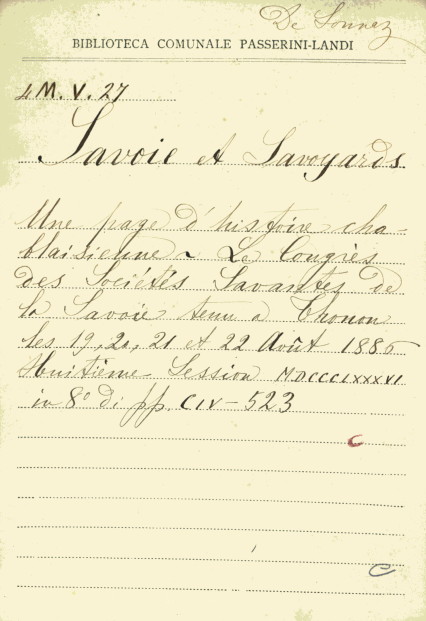 De Sonnaz
BIBLIOTECA COMUNALE PASSERINI-LANDI
4 M. V. 27
Savoie et Savoyards
Une page d'histoire cha-
blaisienne ~ Le Congrès
des Sociétés Savantes de
la Savoie tenu a Thonon
les 19, 20, 21 et 22 Août 1886
Huitième Session MDCCCLXXXVI
in 8º di pp. CIV-523
C
C